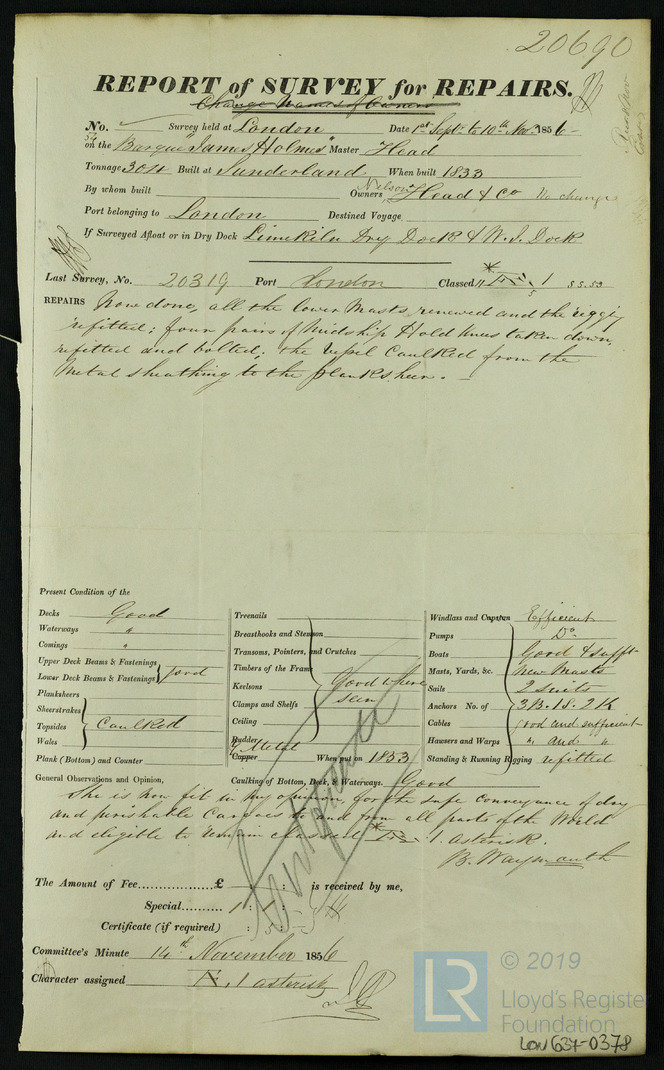 20690
REPORT of SURVEY for REPAIRS.
Change Names of Owners
No. Survey held at London Date 1st Sept to 10th Nov 1856
on the Barque "James Holmes" Master Head
Tonnage 304 Built at Sunderland When built 1833
By whom built Owners Nelson Head & Co No change
Port belonging to London Destined Voyage
If Surveyed Afloat or in Dry Dock Limekiln Dry Dock & W. I. Dock
Last Survey, No. 20319 Port London Classed 1
REPAIRS Now done, all the lower Masts renewed and the rigging
refitted; four pairs of Midship Hold Knees taken down,
refitted and bolted; the Vessel Caulked from the
Metal sheathing to the planksheer.
Present Condition of the
Decks Good
Waterways "
Comings "
Upper Deck Beams & Fastenings
Lower Deck Beams & Fastenings Good
Planksheers
Sheerstrakes
Topsides Caulked
Wales
Plank (Bottom) and Counter
Treenails
Breasthooks and Stemson
Transoms, Pointers, and Crutches
Timbers of the Frame
Keelsons Good where
Clamps and Shelfs seen
Ceiling
Rudder
Y. Metal
Copper When put on 1853
Caulking of Bottom, Deck, & Waterways. Good
Windlass and Capstan Efficient
Pumps Do
Boats Good & sufft
Masts, Yards, &c. New Masts
Sails 2 suits
Anchors No. of 3 B. 1 S. 2 K
Cables good and sufficient
Hawsers and Warps " and "
Standing & Running Rigging refitted
General Observations and Opinion,
She is now fit in my opinion, for the safe conveyance of dry
and perishable Cargoes to and from all parts of the World
and eligible to remain classed 1. asterisk.
B. Waymouth
The Amount of Fee £ : : is received by me,
Special 1 : 1 :
Certificate (if required) : 5 :
Committee's Minute 14th November 1856
Character assigned 1 asterisk
LR
© 2019
Lloyd's Register
Foundation
LON 637-0378